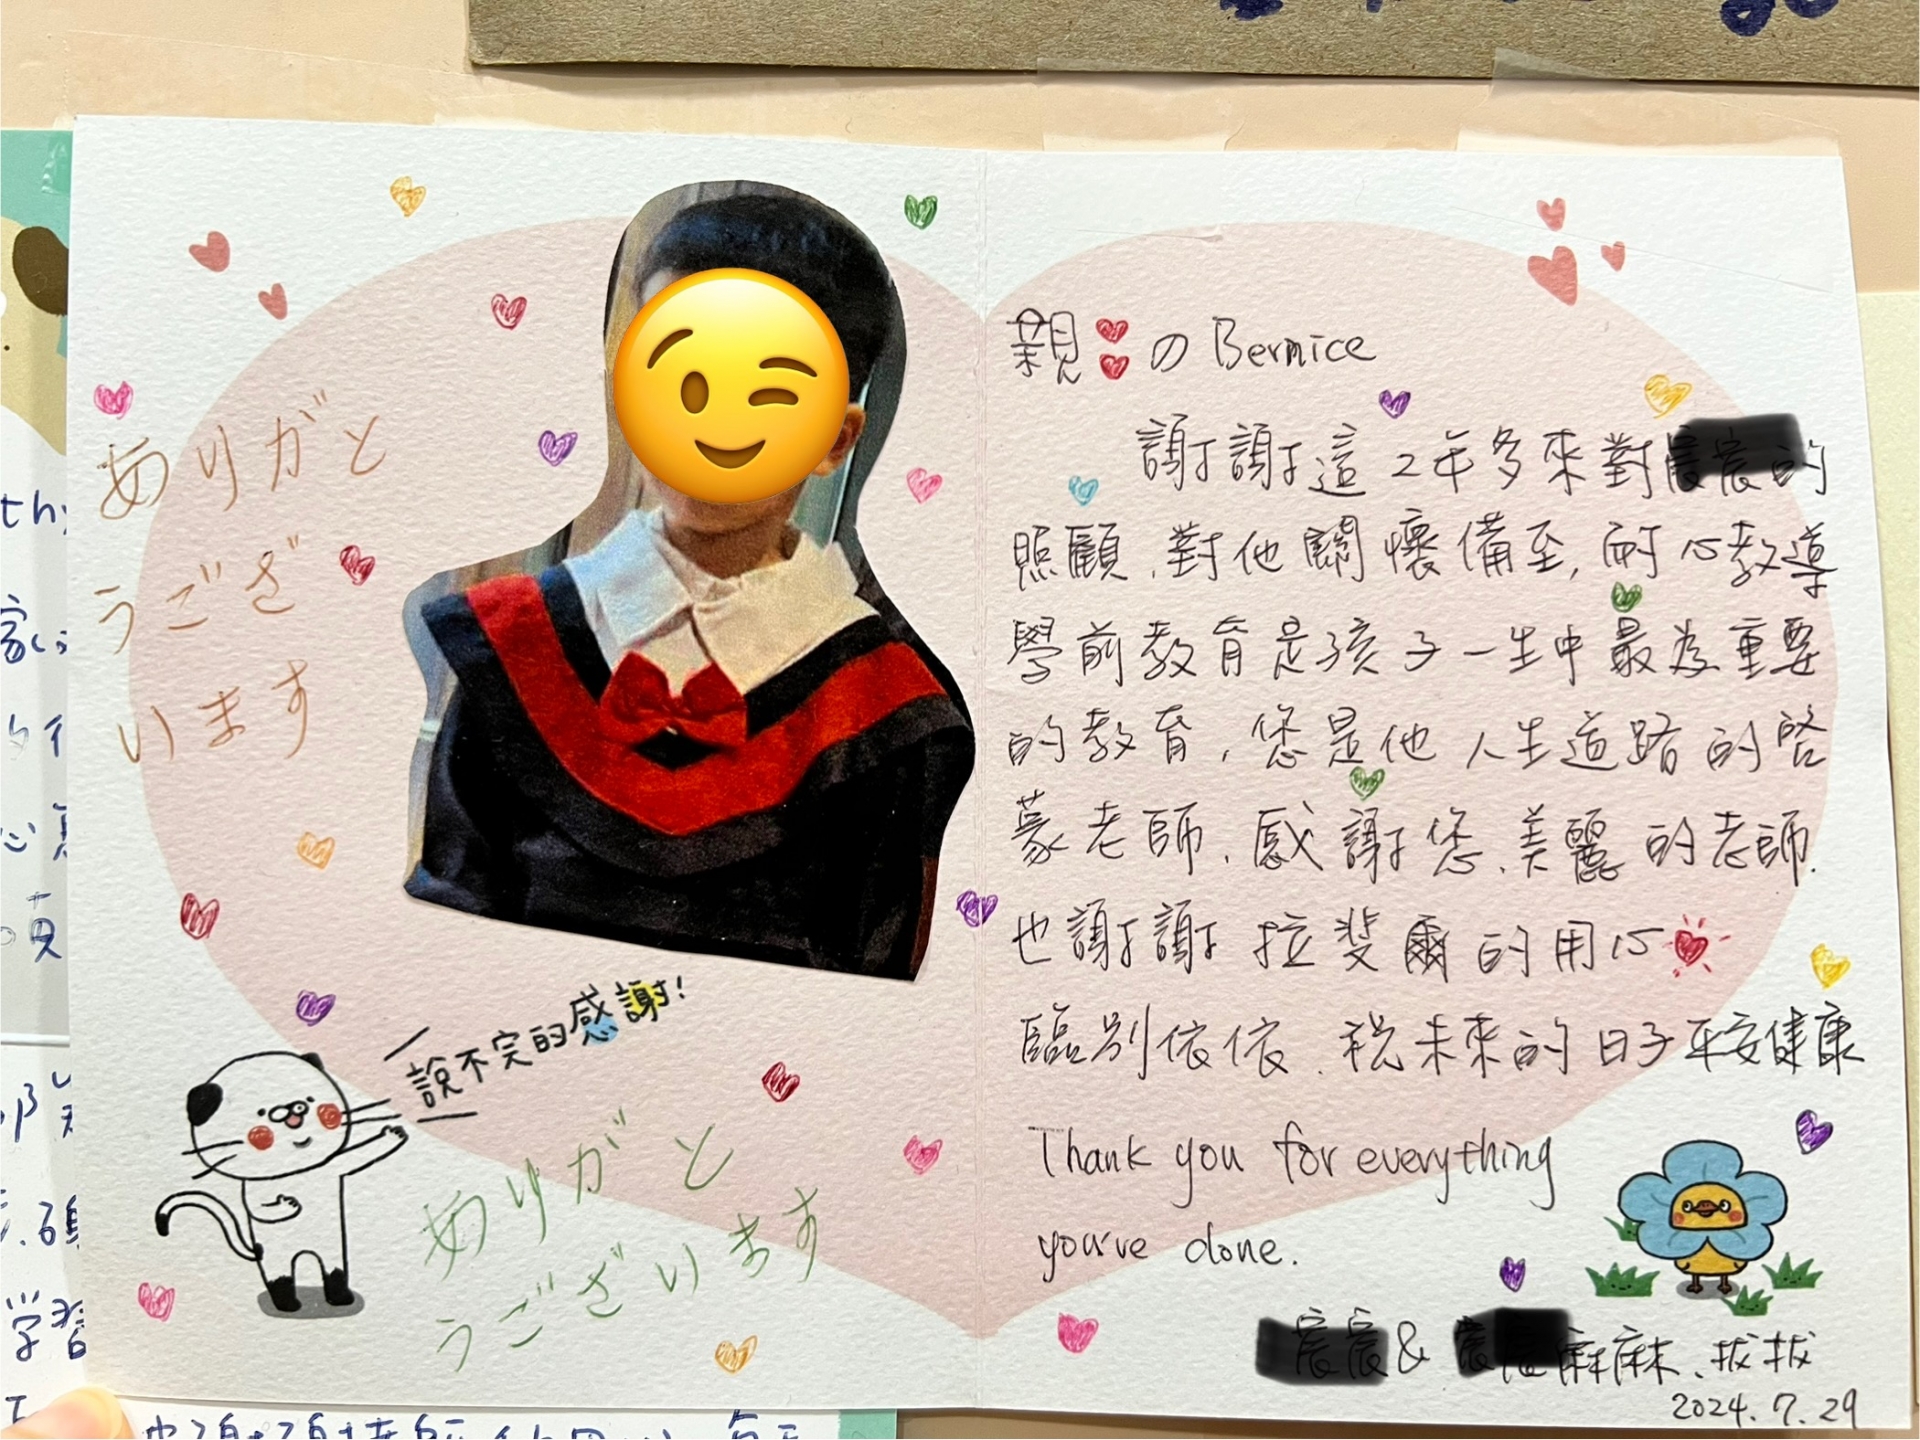 ありがと
うござ
います
說不完的感謝!
ありがと
うございます
親の Bernice
謝謝這2年多來對的
照顧,對他關懷備至,耐心教導
學前教育是孩子一生中最為重要
的教育,您是他人生道路的啓
蒙老師,感謝您,美麗的老師.
也謝謝拉斐爾的用心
臨別依依,祝未來的日子平安健康
Thank you for everything
you've done.
& 麻麻、拔拔
2024.7.29